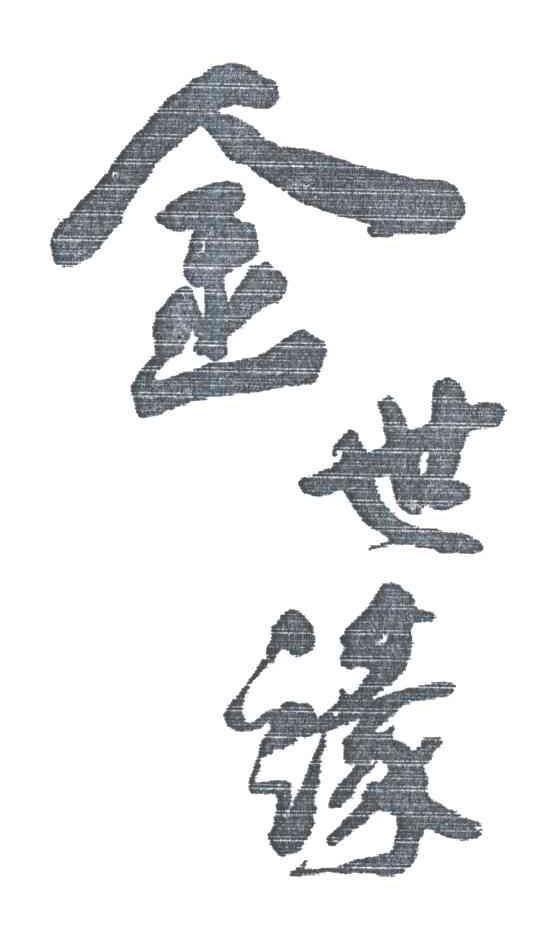 金世缘